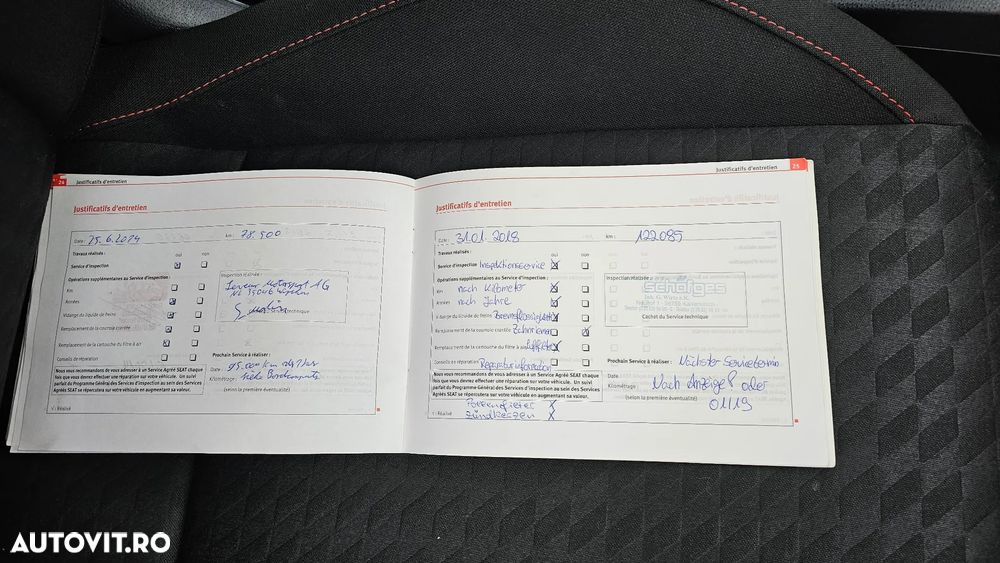 24 Justificatifs d'entretien
Justificatifs d'entretien
Date : 25.6.2014 km : 78.500
Travaux réalisés : oui non
Service d'inspection
Opérations supplémentaires au Service d'inspection: Inspection réalisée :
Km
Années
Vidange du liquide de freins
Remplacement de la courroie crantée
Remplacement de la cartouche du filtre à air
Conseils de réparation
Prochain Service à réaliser :
Date
Kilométrage :
(selon la première éventualité)
Nous vous recommandons de vous adresser à un Service Agréé SEAT chaque
fois que vous devrez effectuer une réparation sur votre véhicule. Un suivi
parfait du Programme Général des Services d'inspection au sein des Services
Agréés SEAT se répercutera sur votre véhicule en augmentant sa valeur.
√ : Réalisé
Justificatifs d'entretien 25
Justificatifs d'entretien
Date : 31.01.2018 km : 122085
Travaux réalisés : oui non
Service d'inspection Inspektionsservice
Opérations supplémentaires au Service d'inspection: Inspection réalisée :
Km nach Kilometer
Années nach Jahre
Vidange du liquide de freins Bremsflüssigkeit
Remplacement de la courroie crantée Zahnriemen
Remplacement de la cartouche du filtre à air Luftfilter
Conseils de réparation Reparaturinformation
schörges
Cachet du Service technique
Prochain Service à réaliser : Nächster Servicetermin
Date
Kilométrage : Nach Anzeige oder
01/19
(selon la première éventualité)
Nous vous recommandons de vous adresser à un Service Agréé SEAT chaque
fois que vous devrez effectuer une réparation sur votre véhicule. Un suivi
parfait du Programme Général des Services d'inspection au sein des Services
Agréés SEAT se répercutera sur votre véhicule en augmentant sa valeur.
√ : Réalisé
Zündkerzen X
AUTOVIT.RO